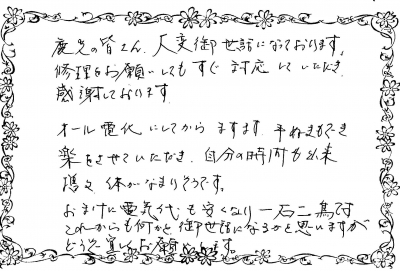 の皆さん、大変御世話になっております。
修理をお願いしてもすぐ対応していただき
感謝しております。
オール電化にしてからますます、手ぬきもでき
楽をさせていただき、自分の時間も出来
体がなまりそうです。
おまけに電気代も安くなり一石二鳥です
これからも何かと御世話になるかと思いますが
どうぞ宜しくお願いします。